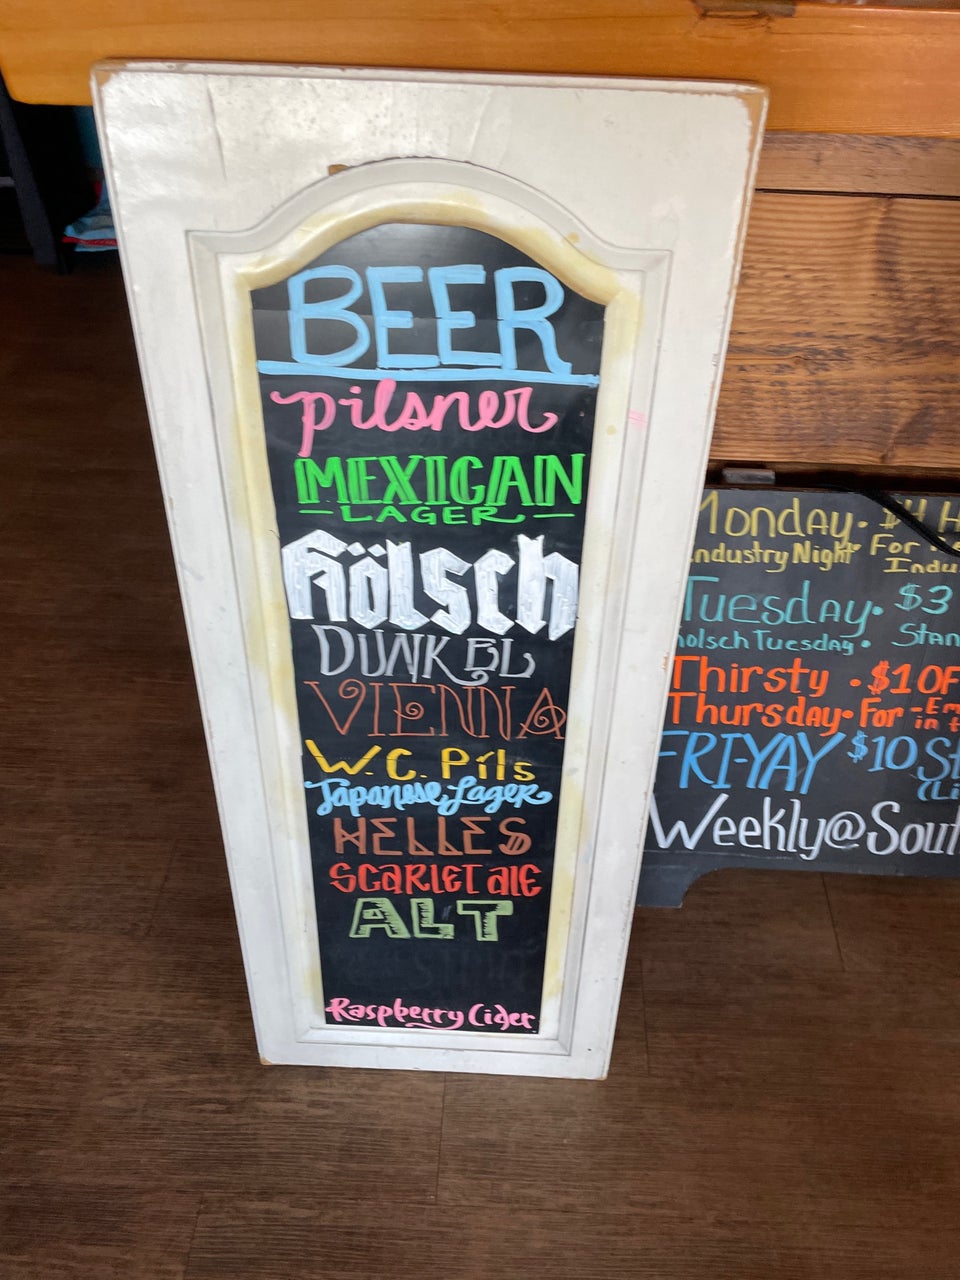 BEER
pilsner
MEXICAN
- LAGER -
Kölsch
DUNKEL
VIENNA
W.C. Pils
Japanese Lager
HELLES
SCARLET ale
ALT
Raspberry Cider
Monday • $4
Industry Night • For
Tuesday • $3
Kolsch Tuesday •
Thirsty • $1 OF
Thursday • For
in
FRI-YAY $10
Weekly @